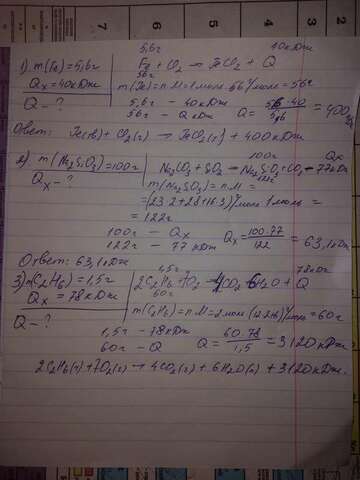 7 6 5 4 3 2
5,6г 40кДж
1) m(Fe)=5,6г Fe + Cl2 → FeCl2 + Q
Qx = 40кДж 56г
Q - ? m(Fe)=n·M=1моль·56г/моль=56г
5,6г - 40кДж
56г - Q кДж Q = 56·40/5,6 = 400кДж
Ответ: Fe(тв) + Cl2(г) → FeCl2(г) + 400кДж
100г Qx
2) m(Na2SiO3)=100г Na2CO3 + SiO2 → Na2SiO3 + CO2 - 77кДж
Qx - ? 122г
m(Na2SiO3) = n·M =
=(23·2+28+16·3)г/моль·1моль =
= 122г
100г - Qx
122г - 77 кДж Qx = 100·77/122 = 63,1кДж
Ответ: 63,1кДж
1,5г 78кДж
3) m(C2H6)=1,5г 2C2H6 + 7O2 → 4CO2 + 6H2O + Q
Qx = 78кДж 60г
Q - ? m(C2H6)=n·M=2моль·(12·2+6)г/моль=60г
1,5г - 78кДж
60г - Q Q = 60·78/1,5 = 3120кДж
2C2H6(г) + 7O2(г) → 4CO2(г) + 6H2O(г) + 3120кДж.